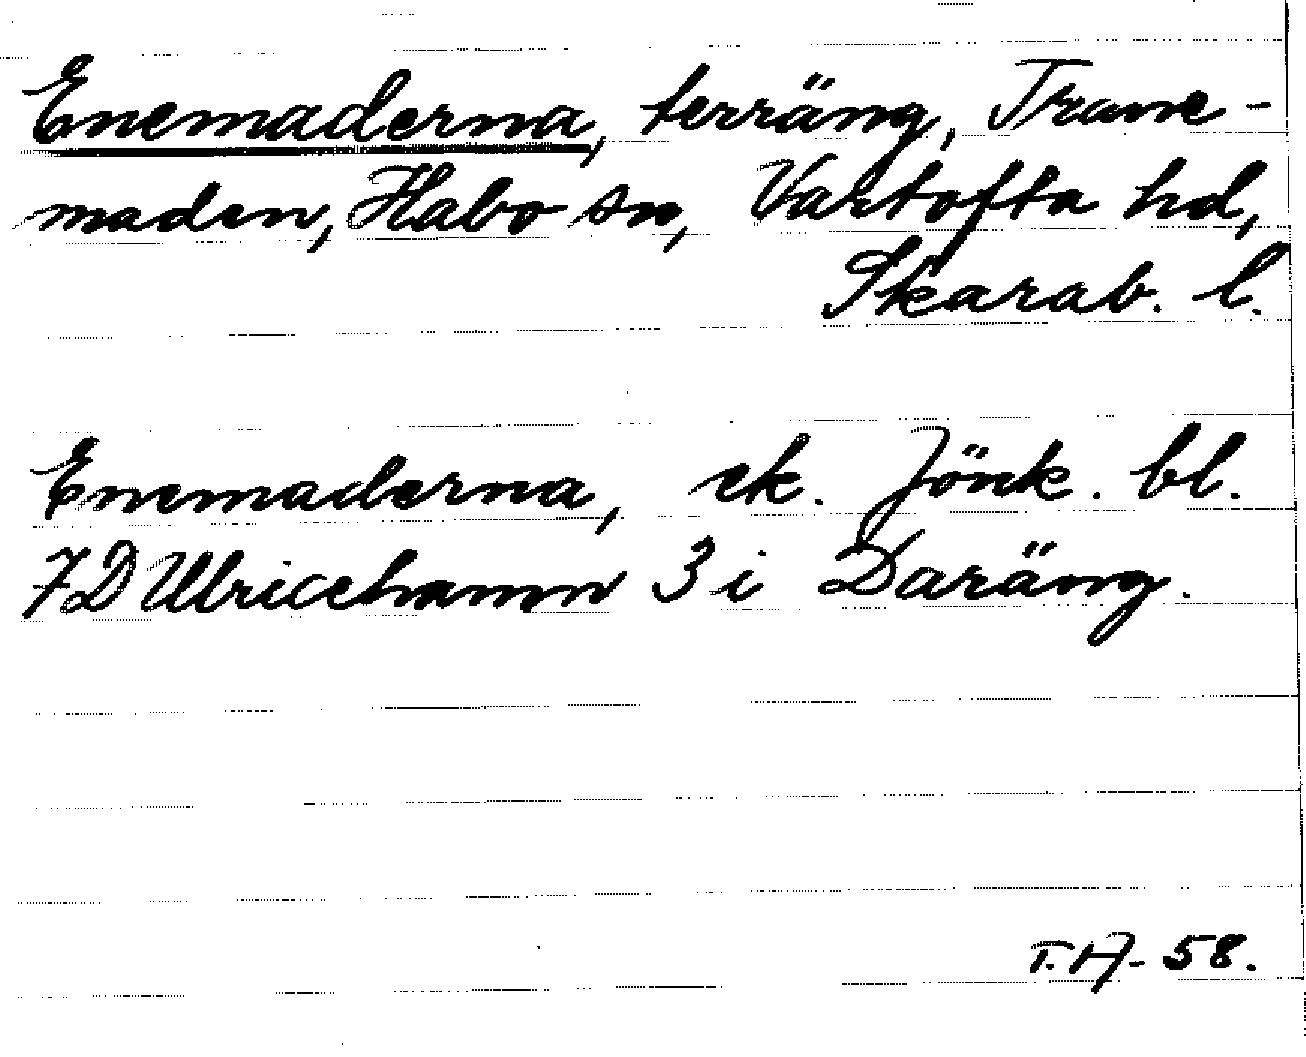 Enemaderna, terräng, Trane-
maden, Habo sn, Vartofta hd,
Skarab. l.
Enemaderna, ek. Jönk. bl.
7D Ulricehamn 3 i Daräng.
T.H- 58.